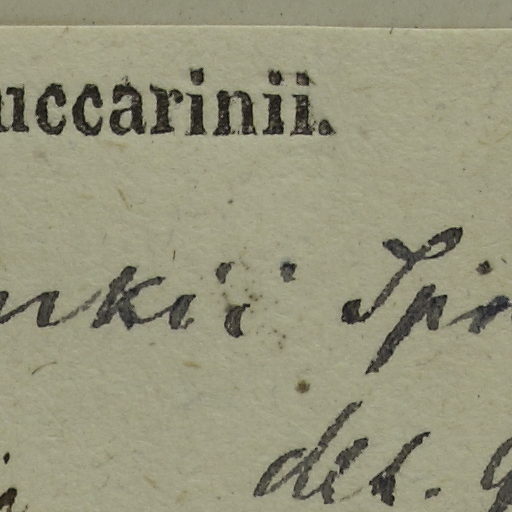 uccarinii.
nkii Spin
det. g